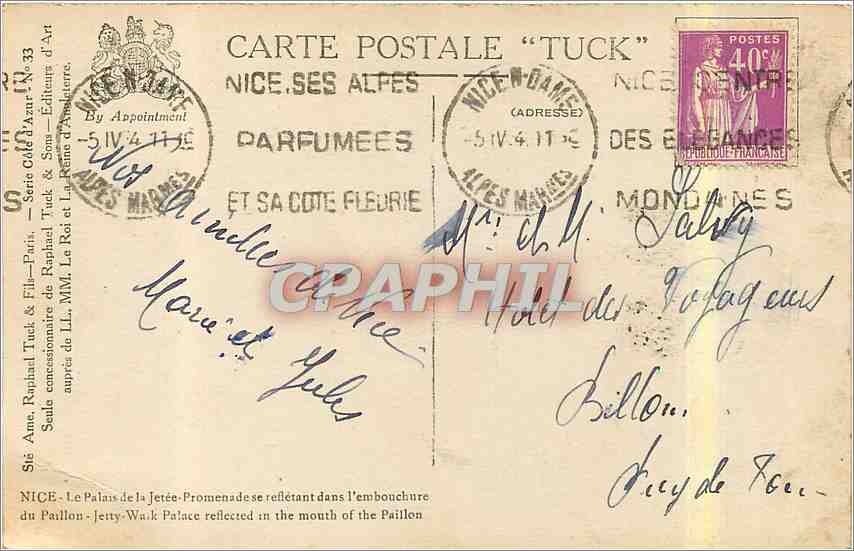 CARTE POSTALE "TUCK"
By Appointment
(ADRESSE)
POSTES
40c
REPUBLIQUE-FRANÇAISE
NICE-N-DAME
-5 IV 4 11
ALPES MARMES
NICE.SES ALPES
PARFUMEES
ET SA COTE FLEURIE
NICE-N-DAME
-5 IV 4. 11
ALPES MARMES
NICE CENTRE
DES ELEGANCES
MONDAINES
Sté Ame. Raphael Tuck & Fils—Paris. — Serie Côte d'Azur - No 33
Seule concessionnaire de Raphael Tuck & Sons — Editeurs d'Art
auprès de LL. MM. Le Roi et La Reine d'Angleterre.
Nos amitiés de Nice
Marie et Jules
CPAPHIL
Mr et M. Salvy
Hotel des Voyageurs
Billom
Puy de Dom
NICE - Le Palais de la Jetée-Promenade se reflétant dans l'embouchure
du Paillon - Jetty-Walk Palace reflected in the mouth of the Paillon